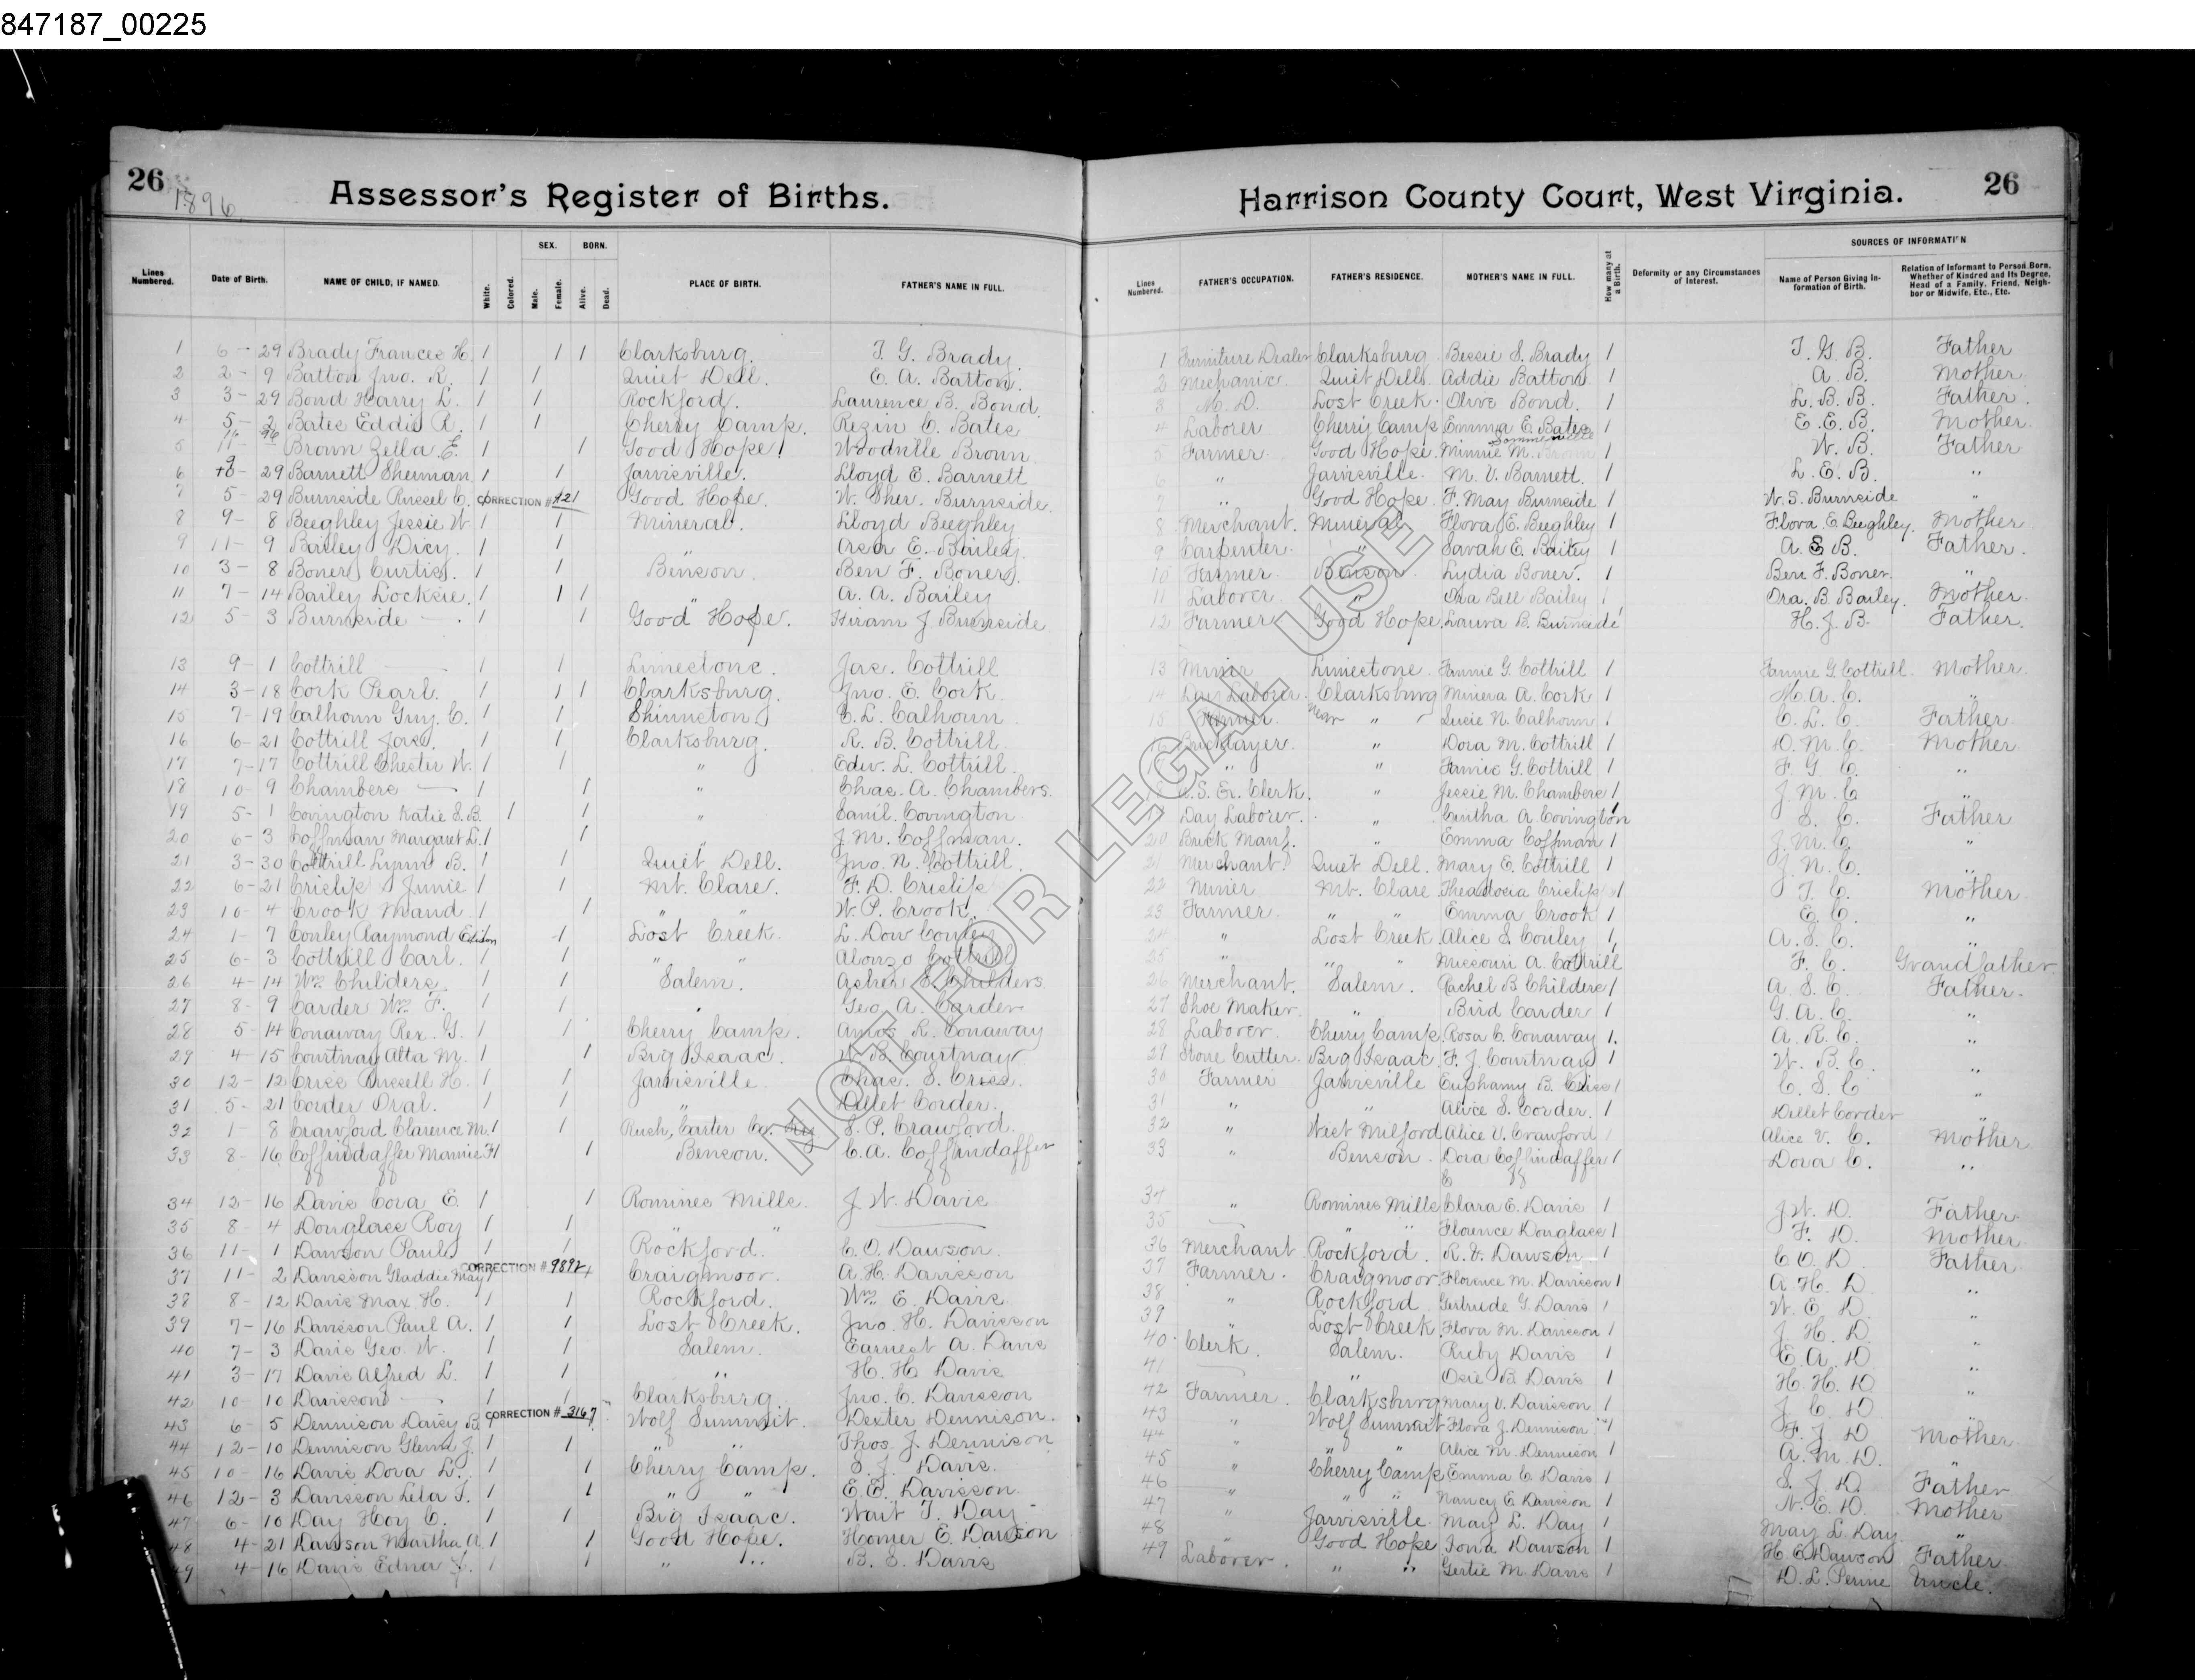 847187_00225
26 1896 Assessor's Register of Births.
Harrison County Court, West Virginia. 26
Lines Numbered. Date of Birth. NAME OF CHILD, IF NAMED. White. Colored. SEX. Male. Female. BORN. Alive. Dead. PLACE OF BIRTH. FATHER'S NAME IN FULL.
Lines Numbered. FATHER'S OCCUPATION. FATHER'S RESIDENCE. MOTHER'S NAME IN FULL. How many at a Birth. Deformity or any Circumstances of Interest. SOURCES OF INFORMATI'N Name of Person Giving Information of Birth. Relation of Informant to Person Born, Whether of Kindred and Its Degree, Head of a Family, Friend, Neighbor or Midwife, Etc., Etc.
1 6-29 Brady Frances H. 1 1 1 Clarksburg. T. G. Brady
2 2-9 Batton Jno. R. 1 1 Quiet Dell. E. A. Batton.
3 3-29 Bond Harry L. 1 1 Rockford. Laurence B. Bond.
4 5-2 Bates Eddie R. 1 1 Cherry Camp. Rezin C. Bates
5 11-96 Brown Zella E. 1 1 Good Hope. Woodville Brown
6 9-29 Barnett Sherman 1 1 Jarvisville. Lloyd E. Barnett
7 5-29 Burnside Russel C. CORRECTION # 421 Good Hope. W. Sher. Burnside.
8 9-8 Beeghley Jessie W. 1 1 Mineral. Lloyd Beeghley
9 11-9 Bailey Dicy. 1 1 " Asa E. Bailey
10 3-8 Boner Curtis. 1 1 Benson Ben F. Boner.
11 7-14 Bailey Locksie. 1 1 1 " A. A. Bailey
12 5-3 Burnside 1 1 Good Hope. Hiram J. Burnside
13 9-1 Cottrill 1 1 Limestone. Jas. Cottrill
14 3-18 Cork Pearl. 1 1 1 Clarksburg. Jno. E. Cork
15 7-19 Calhoun Guy. C. 1 1 Shinnston C. L. Calhoun
16 6-21 Cottrill Jas. 1 1 Clarksburg. R. B. Cottrill
17 7-17 Cottrill Chester W. 1 1 " Edw. L. Cottrill
18 10-9 Chambers 1 1 " Chas. A. Chambers
19 5-1 Covington Katie S. B. 1 " Saml. Covington
20 6-3 Coffman Margaret L. 1 1 " J. M. Coffman.
21 3-30 Cottrill Lynn B. 1 1 Quiet Dell. Jno. N. Cottrill.
22 6-21 Crislip Junie 1 1 Mt. Clare. F. D. Crislip
23 10-4 Crook Maud 1 1 " " W. P. Crook.
24 1-7 Conley Raymond Edison 1 Lost Creek. L. Dow Conley
25 6-3 Cottrill Carl. 1 1 " " Alonzo Cottrill
26 4-14 Wm Childers 1 1 Salem. Asher S. Childers
27 8-9 Carder Wm F. 1 1 " Geo. A. Carder
28 5-14 Conaway Rex. G. 1 1 Cherry Camp. Amos R. Conaway
29 4-15 Courtnay Alta M. 1 1 Big Isaac. W. B. Courtnay
30 12-12 Criss Russell H. 1 1 Jarvisville Chas. S. Criss.
31 5-21 Corder Oral. 1 1 " Dellet Corder.
32 1-8 Crawford Clarence M. 1 1 Rush, Carter Co. Ky S. P. Crawford.
33 8-16 Coffindaffer Mamie F 1 1 Benson. C. A. Coffindaffer
34 12-16 Davis Cora E. 1 1 Romines Mills. J. W. Davis
35 8-4 Douglass Roy 1 1 " "
36 11-1 Dawson Paul 1 1 Rockford. C. O. Dawson
37 11-2 Davisson Gladdie May CORRECTION # 9892 Craigmoor. A. H. Davisson
38 8-12 Davis Max H. 1 1 Rockford. Wm E. Davis
39 7-16 Davisson Paul A. 1 1 Lost Creek. Jno. H. Davisson
40 7-3 Davis Geo. W. 1 1 Salem. Earnest A. Davis
41 3-17 Davis Alfred L. 1 1 " H. H. Davis
42 10-10 Davisson 1 1 Clarksburg. Jno. C. Davisson
43 6-5 Dennison Daisy B. CORRECTION # 3167 Wolf Summit. Dexter Dennison.
44 12-10 Dennison Glenn J. 1 1 " " Thos. J. Dennison
45 10-16 Davis Dora L. 1 1 Cherry Camp. S. J. Davis.
46 12-3 Davisson Lela T. 1 1 " " E. E. Davisson
47 6-10 Day Hoy C. 1 1 Big Isaac. Wait T. Day
48 4-21 Dawson Martha A. 1 1 Good Hope. Homer E. Dawson
49 4-16 Davis Edna J. 1 1 " " B. S. Davis
1 Furniture Dealer Clarksburg Bessie S. Brady 1 T. G. B. Father
2 Mechanic. Quiet Dell. Addie Batton 1 A. B. Mother
3 M. D. Lost Creek. Olive Bond. 1 L. B. B. Father.
4 Laborer Cherry Camp Emma E. Bates 1 E. E. B. Mother
5 Farmer Good Hope. Minnie M. Sommerville 1 W. B. Father
6 " Jarvisville. M. V. Barnett. 1 L. E. B. "
7 " Good Hope. F. May Burnside 1 W. S. Burnside "
8 Merchant. Mineral Flora E. Beeghley 1 Flora E. Beeghley. Mother
9 Carpenter. " Sarah E. Bailey 1 A. E. B. Father.
10 Farmer Benson. Lydia Boner. 1 Ben F. Boner. "
11 Laborer Ora Bell Bailey 1 Ora. B. Bailey. Mother.
12 Farmer Good Hope. Laura B. Burnside 1 H. J. B. Father.
13 Miner Limestone Fannie G. Cottrill 1 Fannie G. Cottrill. Mother
14 Day Laborer. Clarksburg Minera A. Cork 1 M. A. C. "
15 Farmer. near " Lucie N. Calhoun 1 C. L. C. Father
16 Bricklayer. " Dora M. Cottrill 1 D. M. C. Mother
17 " " Fannie G. Cottrill 1 F. G. C. "
18 U. S. Ex. Clerk. " Jessie M. Chambers 1 J. M. C. "
19 Day Laborer. " Cintha A. Covington 1 S. C. Father
20 Brick Manf. " Emma Coffman 1 J. M. C. "
21 Merchant. Quiet Dell. Mary E. Cottrill 1 J. N. C. "
22 Miner Mt. Clare Theadocia Crislip 1 T. C. Mother
23 Farmer. " " Emma Crook 1 E. C. "
24 " Lost Creek. Alice S. Conley 1 A. S. C. "
25 " " " Missouri A. Cottrill F. C. Grandfather
26 Merchant. Salem. Rachel B Childers 1 A. S. C. Father.
27 Shoe Maker. " Bird Carder 1 G. A. C. "
28 Laborer. Cherry Camp. Rosa C. Conaway 1 A. R. C. "
29 Stone Cutter. Big Isaac. F. J. Courtnay 1 W. B. C. "
30 Farmer Jarvisville Euphamy B. Criss 1 C. S. C. "
31 " " Alice S. Corder. 1 Dellet Corder "
32 " West Milford Alice V. Crawford Alice V. C. Mother
33 " Benson. Dora Coffindaffer 1 Dora C. "
34 " Romines Mills Clara E. Davis 1 J. W. D. Father
35 " " Florence Douglass 1 F. D. Mother
36 Merchant Rockford. Dawson 1 C. O. D. Father
37 Farmer. Craigmoor. Florence M. Davisson 1 A. H. D. "
38 " Rockford. Gertrude G. Davis 1 W. E. D. "
39 " Lost Creek. Flora M. Davisson 1 J. H. D. "
40 Clerk. Salem. Ruby Davis 1 E. A. D. "
41 " Osie B. Davis 1 H. H. D. "
42 Farmer. Clarksburg Mary V. Davisson 1 J. C. D. "
43 " Wolf Summit Flora J. Dennison 1 F. J. D. Mother
44 " " " Alice M. Dennison 1 A. M. D. "
45 " Cherry Camp Emma C. Davis 1 S. J. D. Father
46 " " " Nancy E. Davisson 1 N. E. D. Mother
47 " Jarvisville May L. Day 1 May L. Day "
48 " Good Hope Iona Dawson 1 H. E. Dawson Father
49 Laborer. " " Gertie M. Davis 1 D. L. Perine Uncle.
NOT FOR LEGAL USE